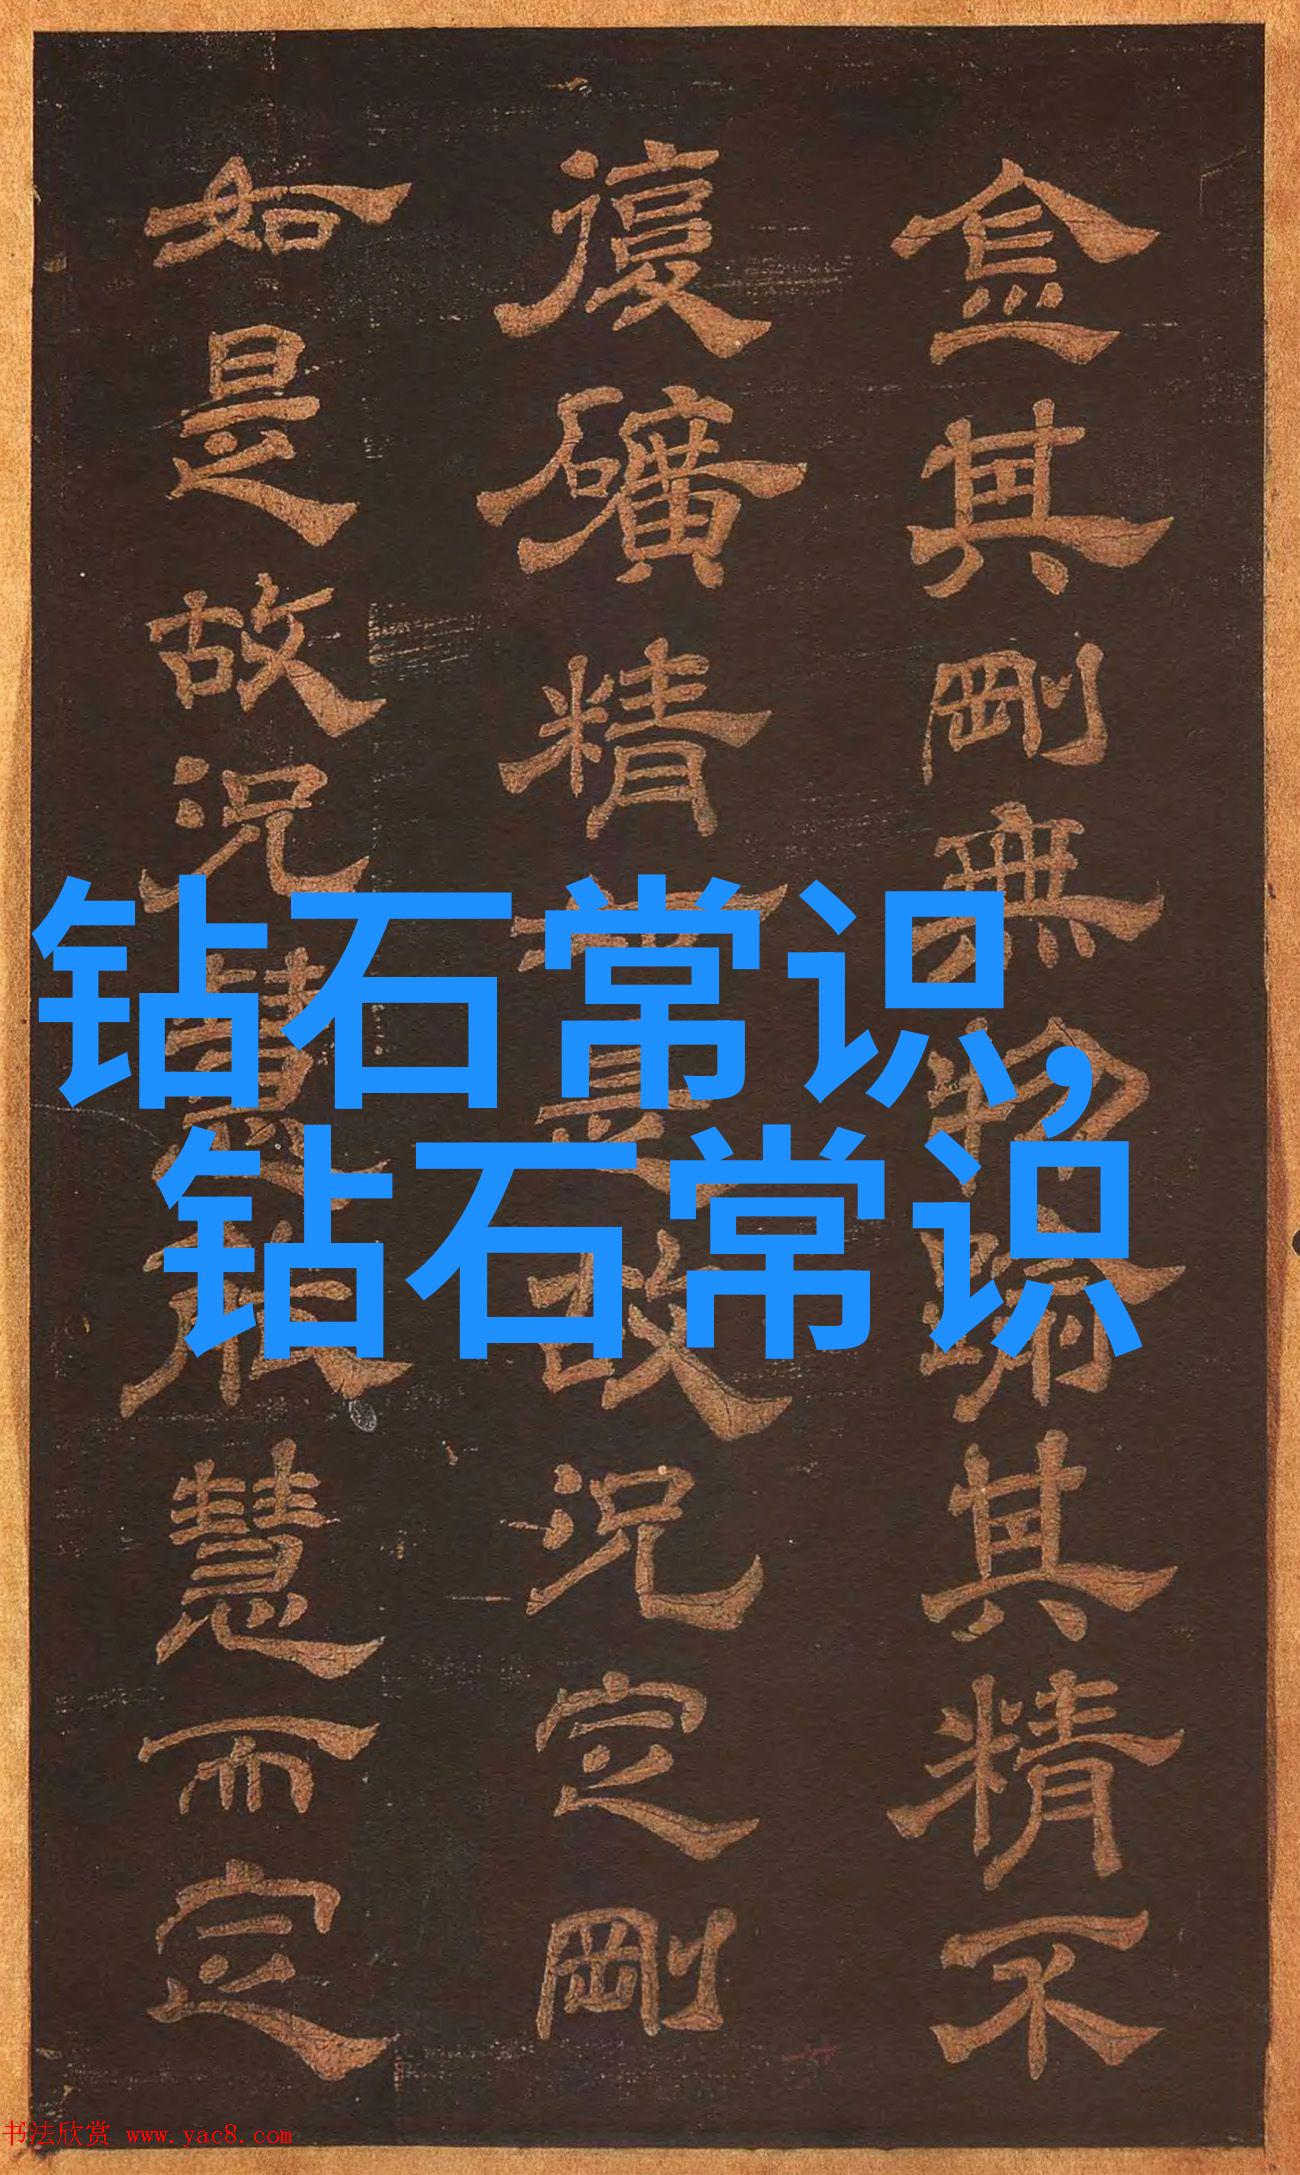 金其剛無物其精不
復礦精是故況定剛
如是故況慧慧而定
钻石常识,
钻石常识
书法欣赏 www.yac8.com